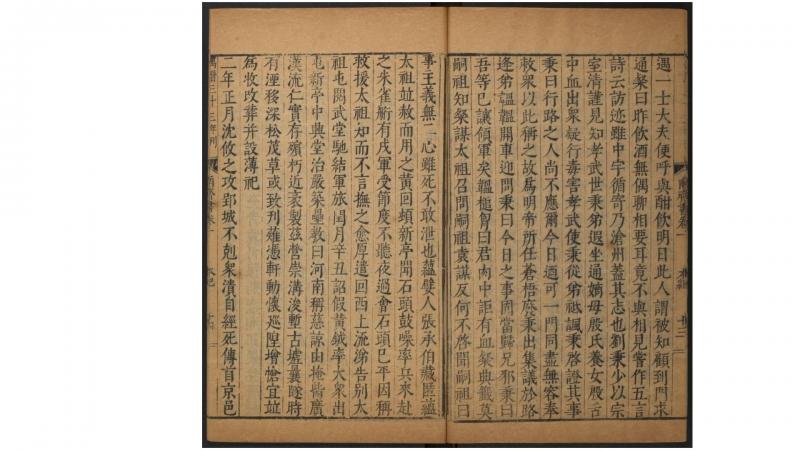 南齊書卷一
本紀
遇一士大夫便呼與酣飲明日此人謂被知顧到門求
通粲曰昨飲酒無偶聊相要耳竟不與相見嘗作五言
詩云訪迹雖中宇循寄乃滄州蓋其志也劉秉少以宗
室清謹見知孝武世秉弟遐坐通嫡母殷氏養女殷舌
中血出衆疑行毒害孝武使秉從弟祗諷秉啓證其事
秉曰行路之人尚不應爾今日迺可一門同盡無容奉
敕衆以此稱之故爲明帝所任蒼梧廢秉出集議於路
逢弟韞韞開車迎問秉曰今日之事固當歸兄邪秉曰
吾等已讓領軍矣韞槌胷曰君肉中詎有血粲典籤莫
嗣祖知粲謀太祖召問嗣祖袁謀反何不啓聞嗣祖曰
事主義無二心雖死不敢泄也蘊嬖人張承伯藏匿蘊
太祖竝赦而用之黃回頓新亭聞石頭鼓噪率兵來赴
之朱雀桁有戍軍受節度不聽夜過會石頭已平因稱
救援太祖知而不言撫之愈厚遣回西上流涕告別太
祖屯閱武堂馳結軍旅閏月辛丑詔假黃鉞率大衆出
屯新亭中興堂治嚴築壘教曰河南稱慈諒由掩胔廣
漢流仁實存殯朽近袤製茲營崇溝浚塹古墟曩隧時
有湮移深松茂草或致刊薙憑軒動懷巡隍增愴宜竝
爲收改葬并設薄祀
二年正月沈攸之攻郢城不剋衆潰自經死傳首京邑
萬曆三十三年刊
南齊書卷一
本紀